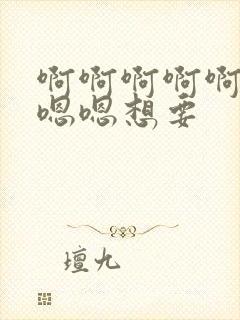 啊啊啊啊啊
嗯嗯想要
壇九